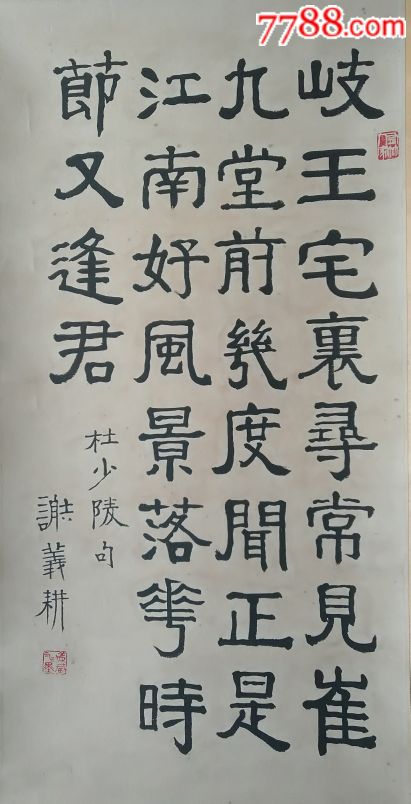 7788.com
岐王宅裏尋常見崔
九堂前幾度聞正是
江南好風景落花時
節又逢君
杜少陵句
謝義耕